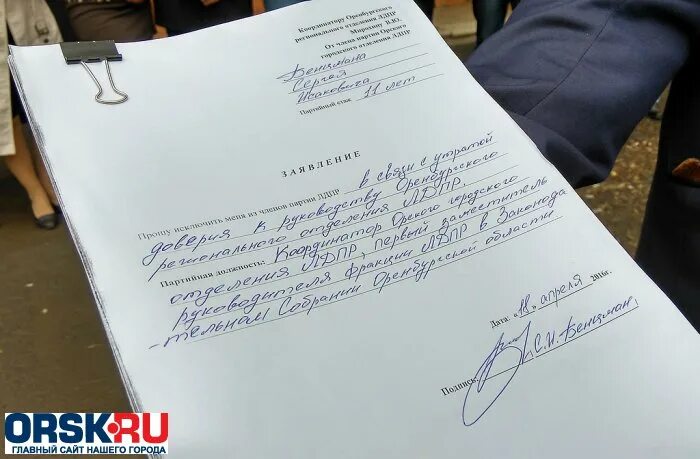 Координатору Оренбургского
регионального отделения ЛДПР
Мирохину И.Ю.
От члена партии Орского
городского отделения ЛДПР
Бенцмана
Сергея
Исаковича
Партийный стаж 11 лет
ЗАЯВЛЕНИЕ
Прошу исключить меня из членов партии ЛДПР в связи с утратой
доверия к руководству Оренбургского
регионального отделения ЛДПР.
Партийная должность: Координатор Орского городского
отделения ЛДПР, первый заместитель
руководителя фракции ЛДПР в Законода
-тельном Собрании Оренбургской области
Дата «11» апреля 2016г.
Подпись: С.И. Бенцман.
ORSK.RU
ГЛАВНЫЙ САЙТ НАШЕГО ГОРОДА